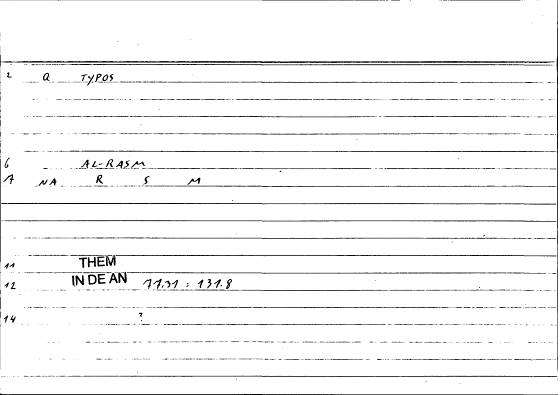 2 Q TYPOS
6 AL-RASM
A NA R S M
11 THEM
12 IN DE AN 11.31 : 131.8
14 ?